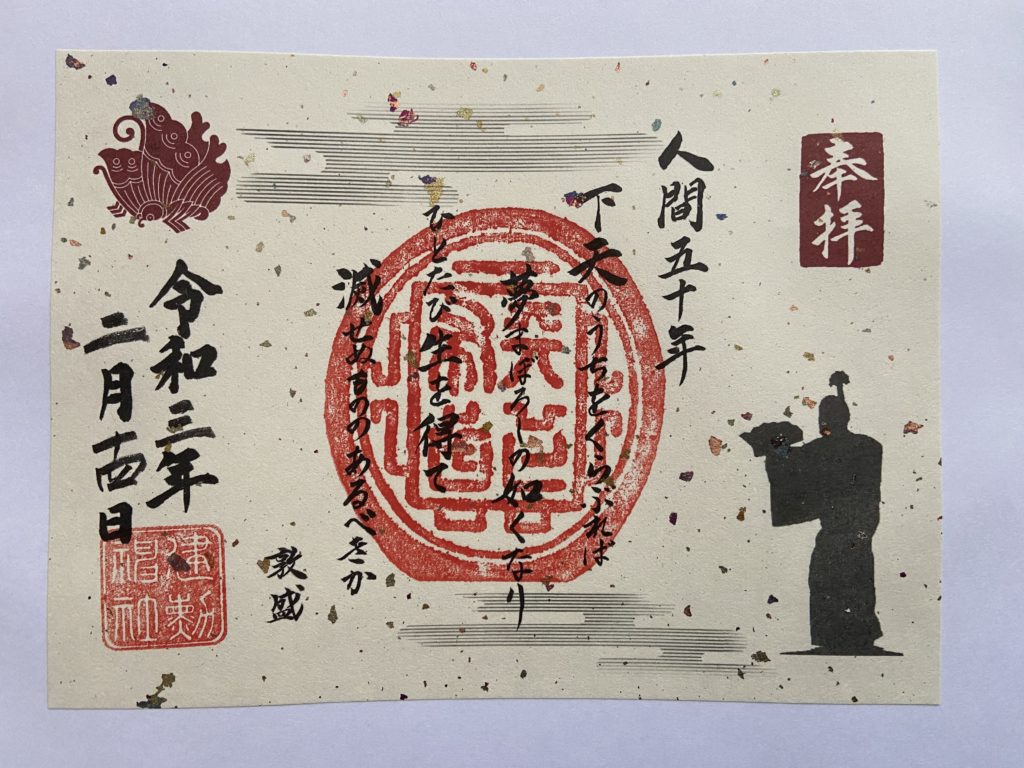 奉拝
人間五十年
下天のうちをくらぶれば
夢まぼろしの如くなり
ひとたび生を得て
滅せぬもののあるべきか
敦盛
令和三年
二月十四日
建勲
神社